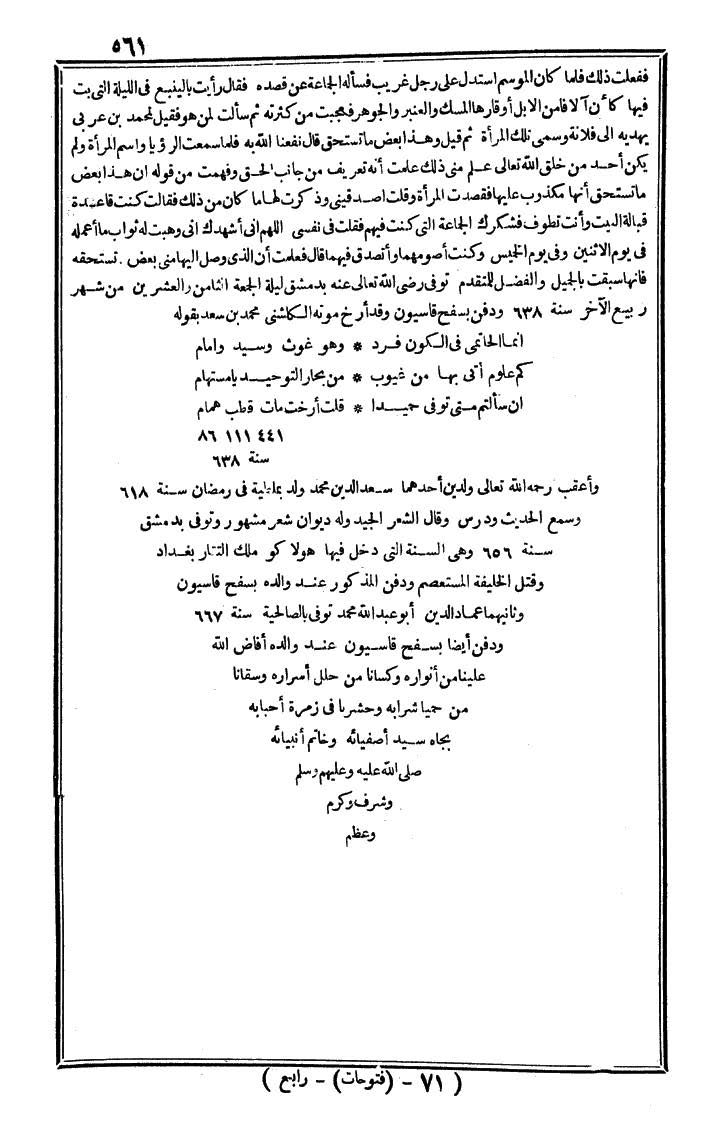 ٥٦١
ففعلت ذلك فلما كان الموسم استدل على رجل غريب فسأله الجماعة عن قصده فقال رأيت بالينبع فى الليلة التى بت
فيها كأن آلافا من الابل أوقارها المسك والعنبر والجوهر فعجبت من كثرته ثم سألت لمن هو فقيل لمحمد بن عربى
يهديه الى فلانة وسمى تلك المرأة ثم قيل وهذا بعض ما تستحق قال نفعنا الله به فلما سمعت الرؤيا واسم المرأة ولم
يكن أحد من خلق الله تعالى علم منى ذلك علمت أنه تعريف من جانب الحق وفهمت من قوله ان هذا بعض
ما تستحق أنها مكذوب عليها فقصدت المرأة وقلت اصدقينى وذكرت لها ما كان من ذلك فقالت كنت قاعدة
قبالة البيت وأنت تطوف فشكرك الجماعة التى كنت فيهم فقلت فى نفسى اللهم انى أشهدك انى وهبت له ثواب ما أعمله
فى يوم الاثنين وفى يوم الخميس وكنت أصومهما وأتصدق فيهما قال فعلمت أن الذى وصل اليها منى بعض . تستحقه
فانها سبقت بالجميل والفضل للمتقدم توفى رضى الله تعالى عنه بدمشق ليلة الجمعة الثامن والعشرين من شهر
ربيع الآخر سنة ٦٣٨ ودفن بسفح قاسيون وقد أرخ موته الكاشنى محمد بن سعد بقوله
انما الحاتمى فى الكون فرد * وهو غوث وسيد وامام
كم علوم أتى بها من غيوب * من بحار التوحيد يا مستهام
ان سألتم متى توفى حميدا * قلت أرخت مات قطب همام
٤٤١ ١١١ ٨٦
سنة ٦٣٨
وأعقب رحمه الله تعالى ولدين أحدهما سعد الدين محمد ولد بملطية فى رمضان سنة ٦١٨
وسمع الحديث ودرس وقال الشعر الجيد وله ديوان شعر مشهور وتوفى بدمشق
سنة ٦٥٦ وهى السنة التى دخل فيها هولاكو ملك التتار بغداد
وقتل الخليفة المستعصم ودفن المذكور عند والده بسفح قاسيون
وثانيهما عماد الدين أبو عبد الله محمد توفى بالصالحية سنة ٦٦٧
ودفن أيضا بسفح قاسيون عند والده أفاض الله
علينا من أنواره وكسانا من حلل أسراره وسقانا
من حميا شرابه وحشرنا فى زمرة أحبابه
بجاه سيد أصفيائه وخاتم أنبيائه
صلى الله عليه وعليهم وسلم
وشرف وكرم
وعظم
( ٧١ - (فتوحات) - رابع )